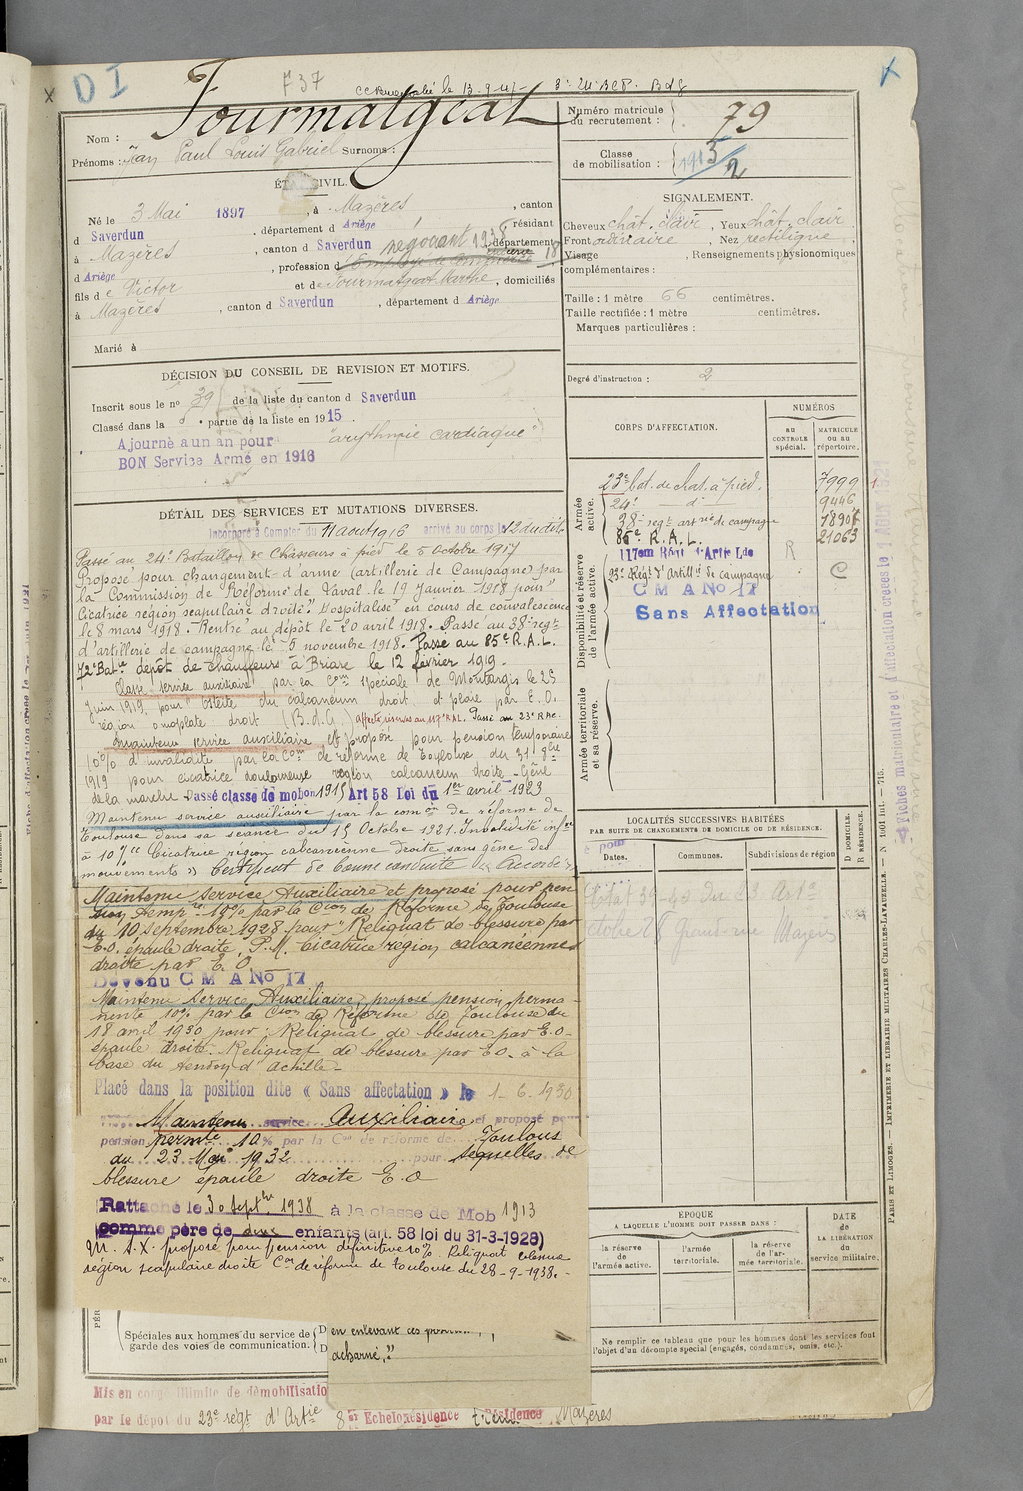 D I
F 37
Fourmatgeat
Nom :
Prénoms : Jean Paul Louis Gabriel Surnoms :
Numéro matricule du recrutement : 79
Classe de mobilisation : 1913/2
ÉTAT CIVIL.
Né le 3 Mai 1897, à Mazères, canton
d Saverdun, département d Ariège, résidant
à Mazères, canton d Saverdun, département
d Ariège, profession d négociant 1938
fils de Victor et de Fourmatgeat Marthe, domiciliés
à Mazères, canton d Saverdun, département d Ariège
Marié à
SIGNALEMENT.
Cheveux chât. clair, Yeux chât. clair
Front ordinaire, Nez rectiligne
Visage , Renseignements physionomiques
complémentaires :
Taille : 1 mètre 66 centimètres.
Taille rectifiée : 1 mètre centimètres.
Marques particulières :
Degré d'instruction : 2
DÉCISION DU CONSEIL DE REVISION ET MOTIFS.
Inscrit sous le no 39 de la liste du canton d Saverdun
Classé dans la partie de la liste en 1915
Ajourné a un an pour "arythmie cardiaque"
BON Service Armé en 1916
CORPS D'AFFECTATION.
NUMÉROS
au CONTROLE spécial.
MATRICULE ou au répertoire.
Armée active.
23e bat. de chas. à pied. 7999
24e d° 9446
38e regt artrie de campagne 18907
85e R.A.L. 21063
Disponibilité et réserve de l'armée active.
117em Régt d'Artie Lde R
23e Régt d'Artillie de campagne C
C M A No 17
Sans Affectation
Armée territoriale et sa réserve.
DÉTAIL DES SERVICES ET MUTATIONS DIVERSES.
Incorporé à Compter du 11 aout 1916 arrivé au corps le 12 dudit
Passé au 24e Bataillon de Chasseurs à pied le 5 Octobre 1917
Proposé pour changement d'arme (artillerie de Campagne) par
la Commission de Réforme de Laval le 19 Janvier 1918 pour "
Cicatrice région scapulaire droite". Hospitalisé en cours de convalescence
le 8 mars 1918. Rentré au dépôt le 20 avril 1918. Passé au 38e regt
d'artillerie de campagne le 5 novembre 1918. Passé au 85e R.A.L.
72e Batie dépôt de chauffeurs à Briare le 12 février 1919.
Classé service auxiliaire par la Com spéciale de Montargis le 23
Juin 1919 pour "Ostéite du calcanéum droit et plaie par E.O.
région omoplate droit (B.d.G.) affecté réserves au 117e RAL. Passé au 23e RAC.
Maintenu service auxiliaire et proposé pour pension temporaire
10% d'invalidité par la Com de réforme de Toulouse du 31 Xbre
1919 pour cicatrice douloureuse région calcanéum droite - Gêne
de la marche Passé classe de mobon 1915 Art 58 Loi du 1er avril 1923
Maintenu service auxiliaire par la comon de réforme de
Toulouse dans sa séance du 15 Octobre 1921. Invalidité infre
à 10% "Cicatrice région calcanéenne droite sans gêne des
mouvements" Certificat de bonne conduite "Accordé"
Maintenu Service Auxiliaire et proposé pour pen
sion tempre 10% par la Cion de Réforme de Toulouse
du 10 Septembre 1928 pour "Reliquat de blessure par
E.O. épaule droite. P.M. Cicatrice région calcanéenne
droite par E.O.
Devenu C M A No 17
Maintenu Service Auxiliaire, proposé pension perma-
nente 10% par la Cion de Réforme de Toulouse du
18 avril 1930 pour : Reliquat de blessure par E.O.
épaule droite. Reliquat de blessure par E.O. à la
base du tendon d'Achille -
Placé dans la position dite « Sans affectation » le 1-6-1930
Maintenu service Auxiliaire et proposé pour
pension permte 10% par la Con de réforme de Toulouse
du 23 Mai 1932 pour séquelles de
blessure épaule droite E.O
Rattaché le 30 septbre 1938 à la classe de Mob 1913
comme père de deux enfants (art. 58 loi du 31-3-1928)
M. S.X. proposé pour pension définitive 10%. Reliquat blessure
région scapulaire droite Con de réforme de Toulouse du 28-9-1938.
LOCALITÉS SUCCESSIVES HABITÉES
PAR SUITE DE CHANGEMENTS DE DOMICILE OU DE RÉSIDENCE.
Dates.
Communes.
Subdivisions de région
D DOMICILE.
R RÉSIDENCE.
ÉPOQUE
A LAQUELLE L'HOMME DOIT PASSER DANS :
la réserve de l'armée active.
l'armée territoriale.
la réserve de l'armée territoriale.
DATE de LA LIBÉRATION du service militaire.
Ne remplir ce tableau que pour les hommes dont les services font
l'objet d'un décompte spécial (engagés, condamnés, omis, etc.).
Spéciales aux hommes du service de
garde des voies de communication.
en enlevant ces
acharné."
Mis en congé illimité de démobilisation
par le dépôt du 23e régt d'Artie 8er Echelon résidence Résidence Mazères
PARIS ET LIMOGES. — IMPRIMERIE ET LIBRAIRIE MILITAIRES CHARLES-LAVAUZELLE. — N° 1501 int. — 715.